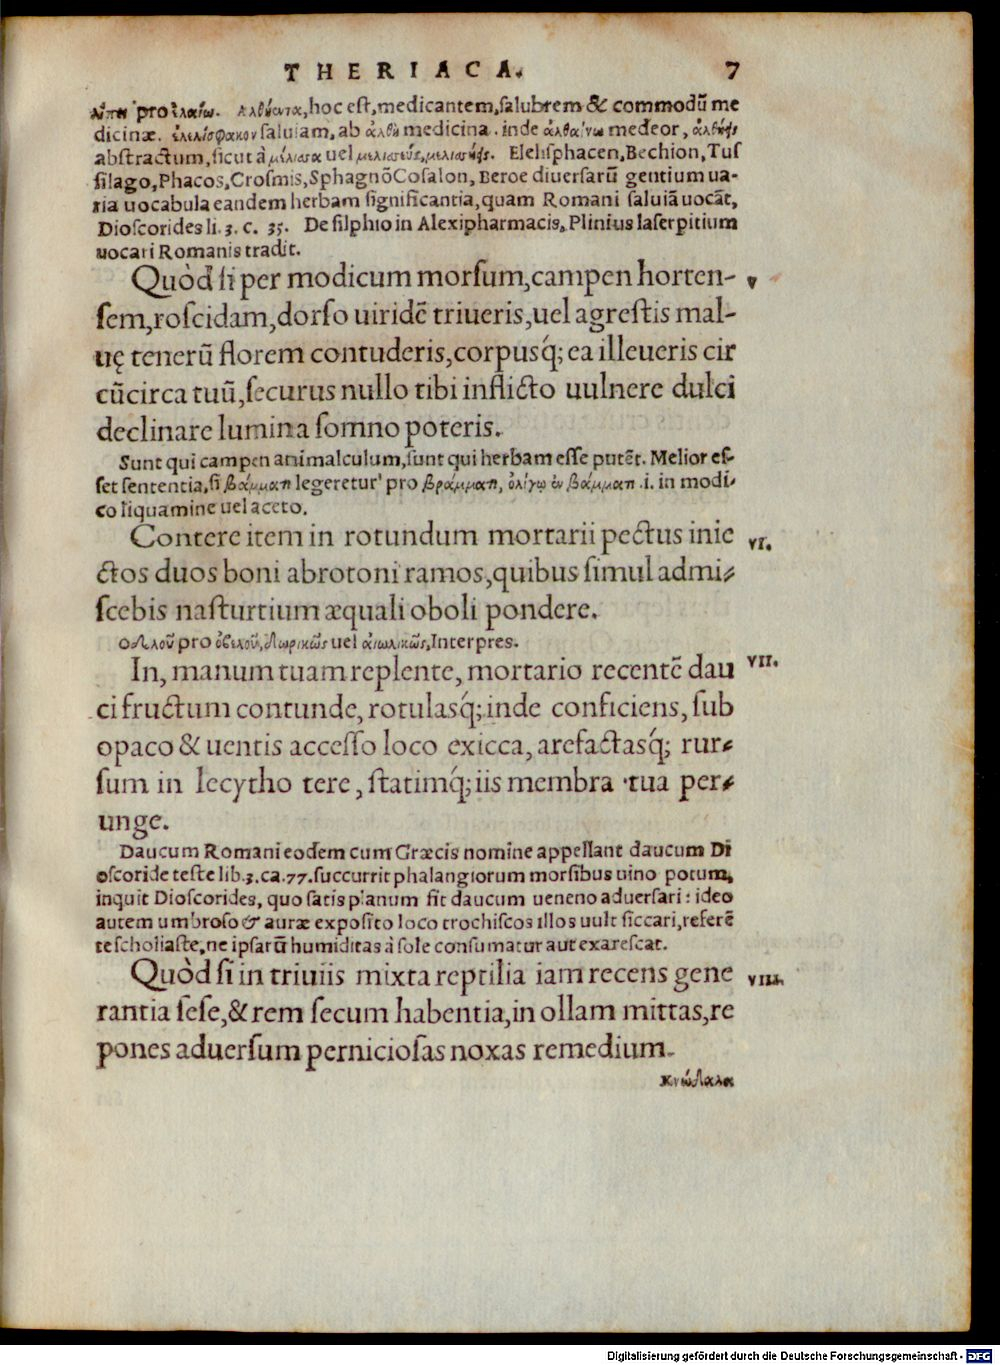 THERIACA. 7
λίπει pro ἐλαίω. Αλθήεντα, hoc est, medicantem, salubrem & commodū me
dicinæ. ἐλελίσφακον saluiam, ab ἄλθω medicina. inde ἀλθαίνω medeor, ἀλθήεις
abstractum, sicut à μέλισσα uel
Elelisphacen, Bechion, Tus
silago, Phacos, Crosmis, Sphagnō Cosalon, Beroe diuersarū gentium ua-
ria uocabula eandem herbam significantia, quam Romani saluiā uocāt,
Dioscorides li. 3. c. 35. De silphio in Alexipharmacis, Plinius laserpitium
uocari Romanis tradit.
Quòd si per modicum morsum, campen horten- V
sem, roscidam, dorso uiridē triueris, uel agrestis mal-
uę tenerū florem contuderis, corpusq́; ea illeueris cir
cūcirca tuū, securus nullo tibi inflicto uulnere dulci
declinare lumina somno poteris.
Sunt qui campen animalculum, sunt qui herbam esse putēt. Melior es-
set sententia, si βάμματι legeretur pro βράμματι, ὀλίγῳ ἐν βάμματι .i. in modi-
co liquamine uel aceto.
Contere item in rotundum mortarii pectus inie VI.
ctos duos boni abrotoni ramos, quibus simul admi-
scebis nasturtium æquali oboli pondere.
οδελοῦ pro ὀβελοῦ, δωρικῶς uel αἰωλικῶς, Interpres.
In, manum tuam replente, mortario recentē dau VII.
ci fructum contunde, rotulasq́; inde conficiens, sub
opaco & uentis accesso loco exicca, arefactasq́; rur-
sum in lecytho tere, statimq́; iis membra tua per-
unge.
Daucum Romani eodem cum Græcis nomine appellant daucum Di
oscoride teste lib. 3. ca. 77. succurrit phalangiorum morsibus uino potum,
inquit Dioscorides, quo satis planum fit daucum ueneno aduersari: ideo
autem umbroso & auræ exposito loco trochiscos illos uult siccari, referē
te scholiaste, ne ipsarū humiditas à sole consumatur aut exarescat.
Quòd si in triuiis mixta reptilia iam recens gene VIII.
rantia sese, & rem secum habentia, in ollam mittas, re
pones aduersum perniciosas noxas remedium.
κνώδαλα
Digitalisierung gefördert durch die Deutsche Forschungsgemeinschaft - DFG